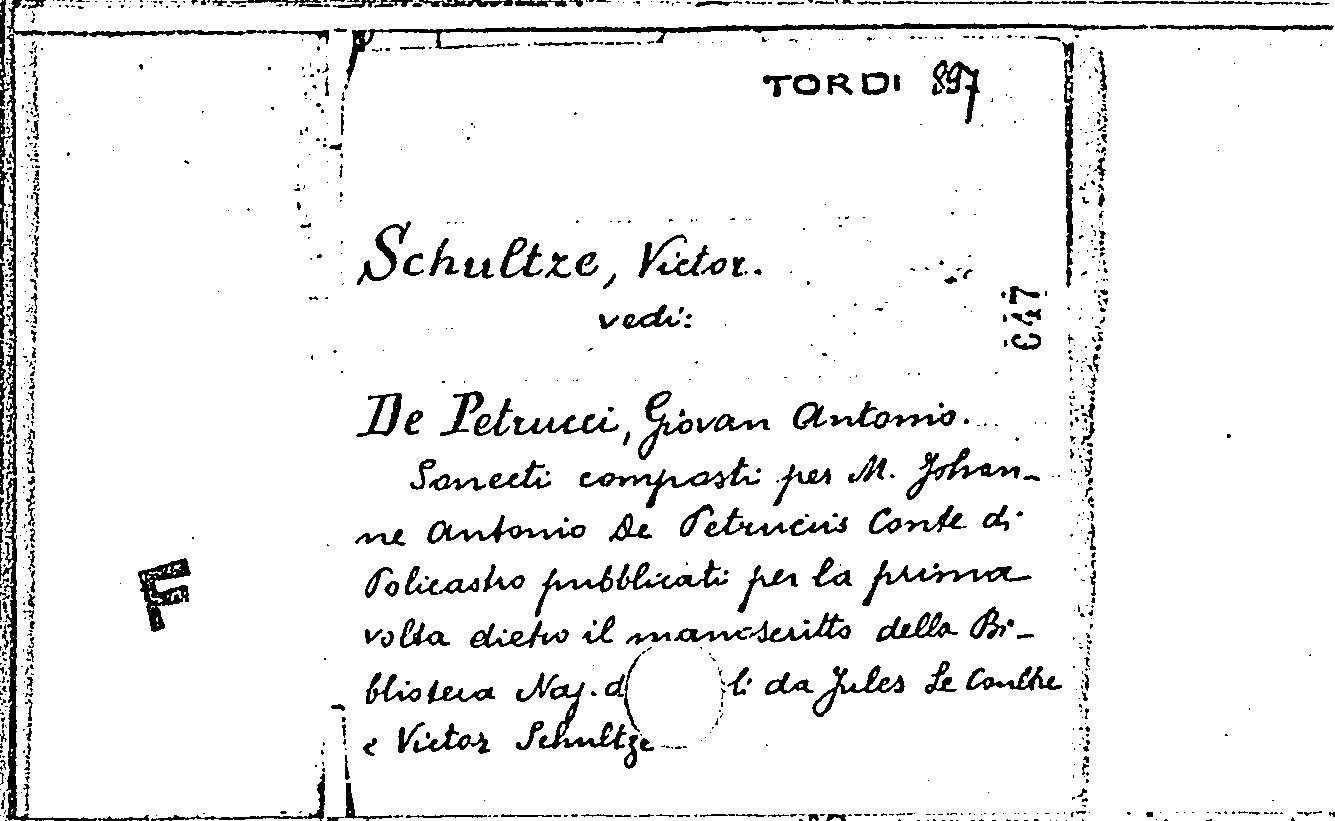 TORDI 897
Schultze, Victor.
vedi:
647
De Petrucci, Giovan Antonio.
Sonecti composti per M. Johan-
ne Antonio De Petruciis Conte di
Policastro pubblicati per la prima
volta dietro il manoscritto della Bi-
blioteca Naz. d li da Jules Le Coultre
e Victor Schultze
F